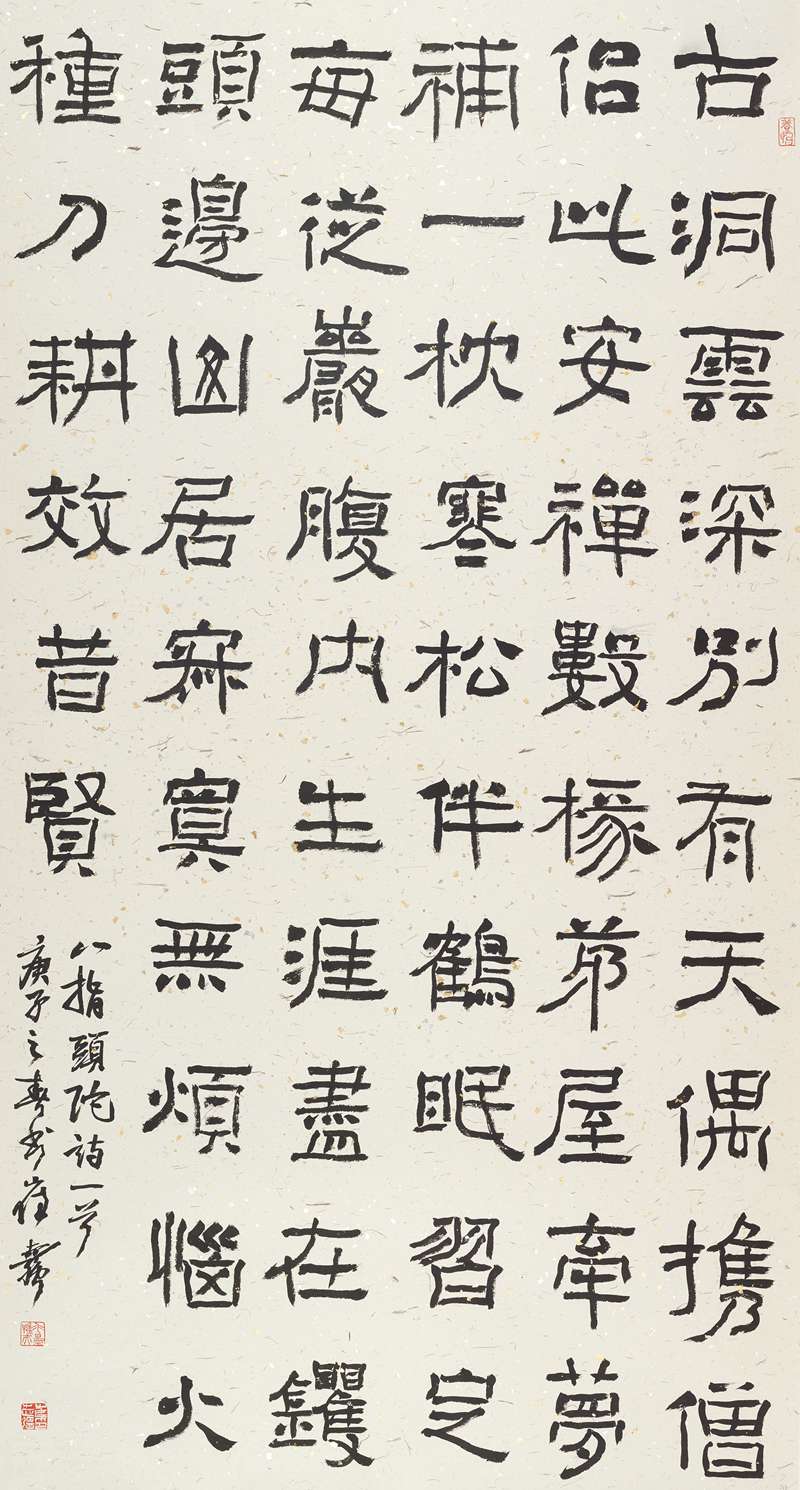 古洞雲深別有天偶携僧
侶此安禪數椽茅屋牽夢
補一枕寒松伴鶴眠習定
每從巖腹內生涯盡在钁
頭邊山居寂寞無煩惱火
種刀耕效昔賢
八指頭陀詩一首
庚子之春書崔